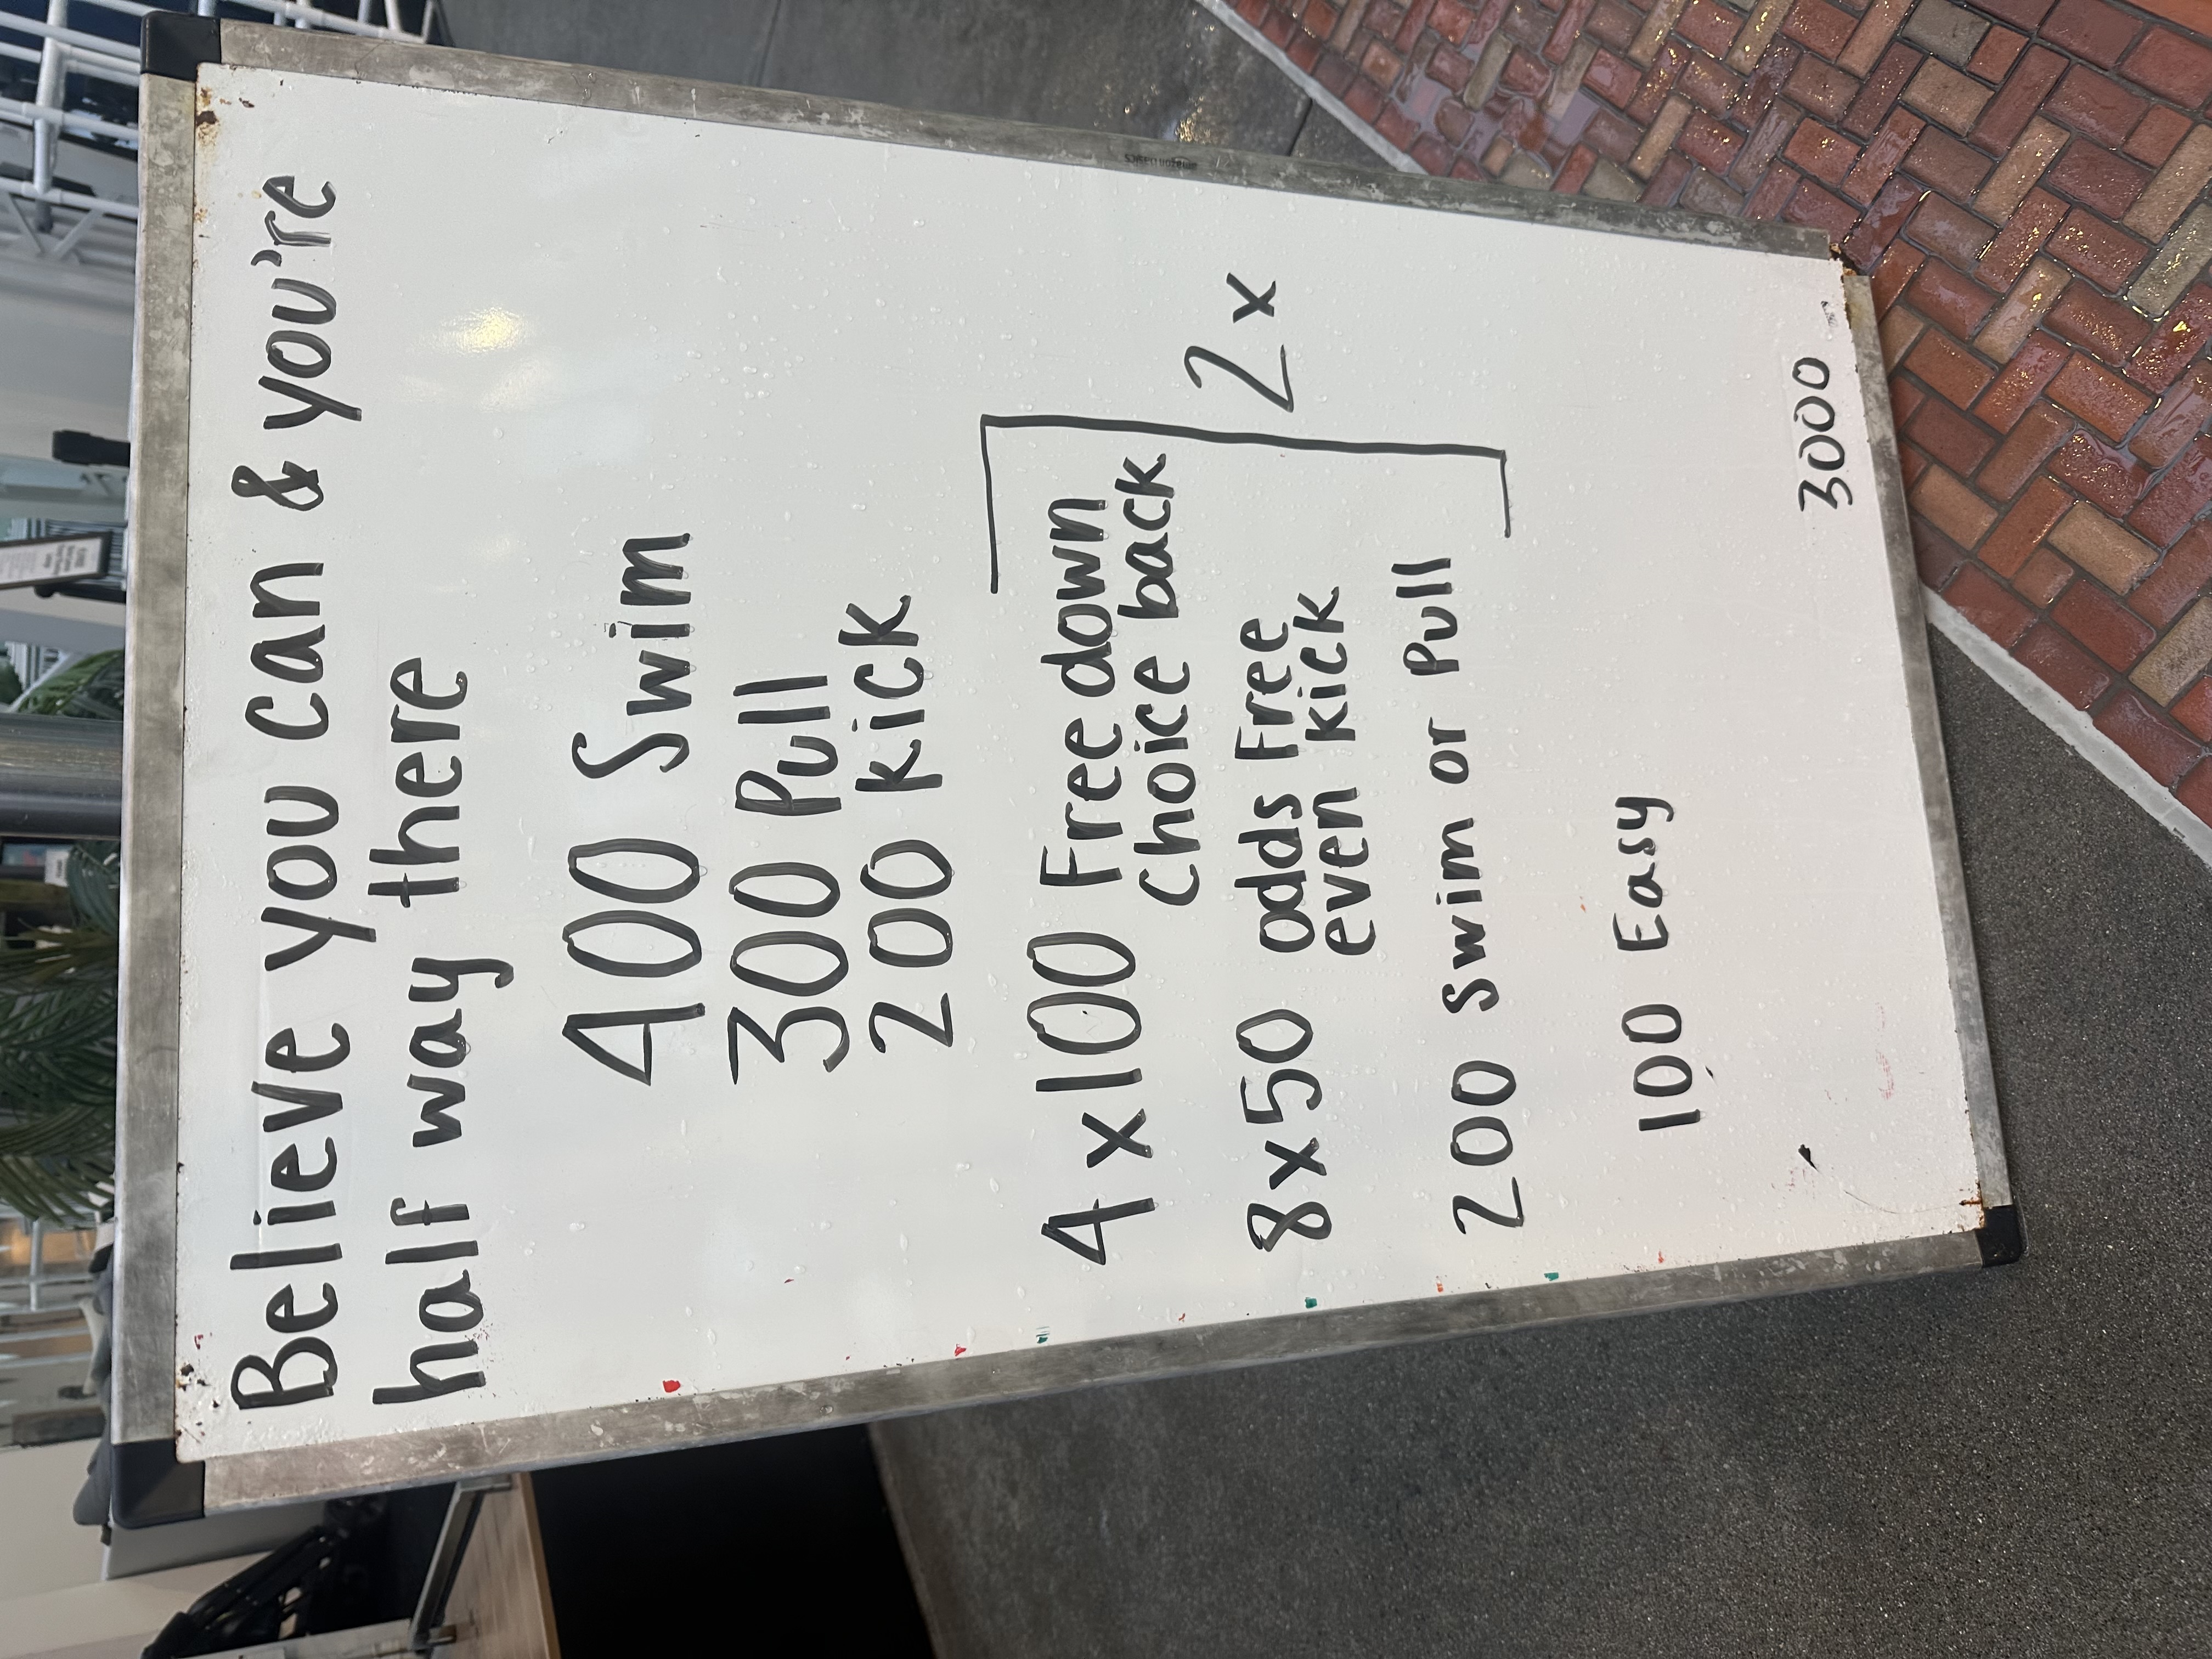 Believe you can & you're
half way there
400 Swim
300 Pull
200 kick
4x100 Free down
choice back
8x50 odds Free
even kick
200 Swim or Pull
2x
100 Easy
3000
amazon basics